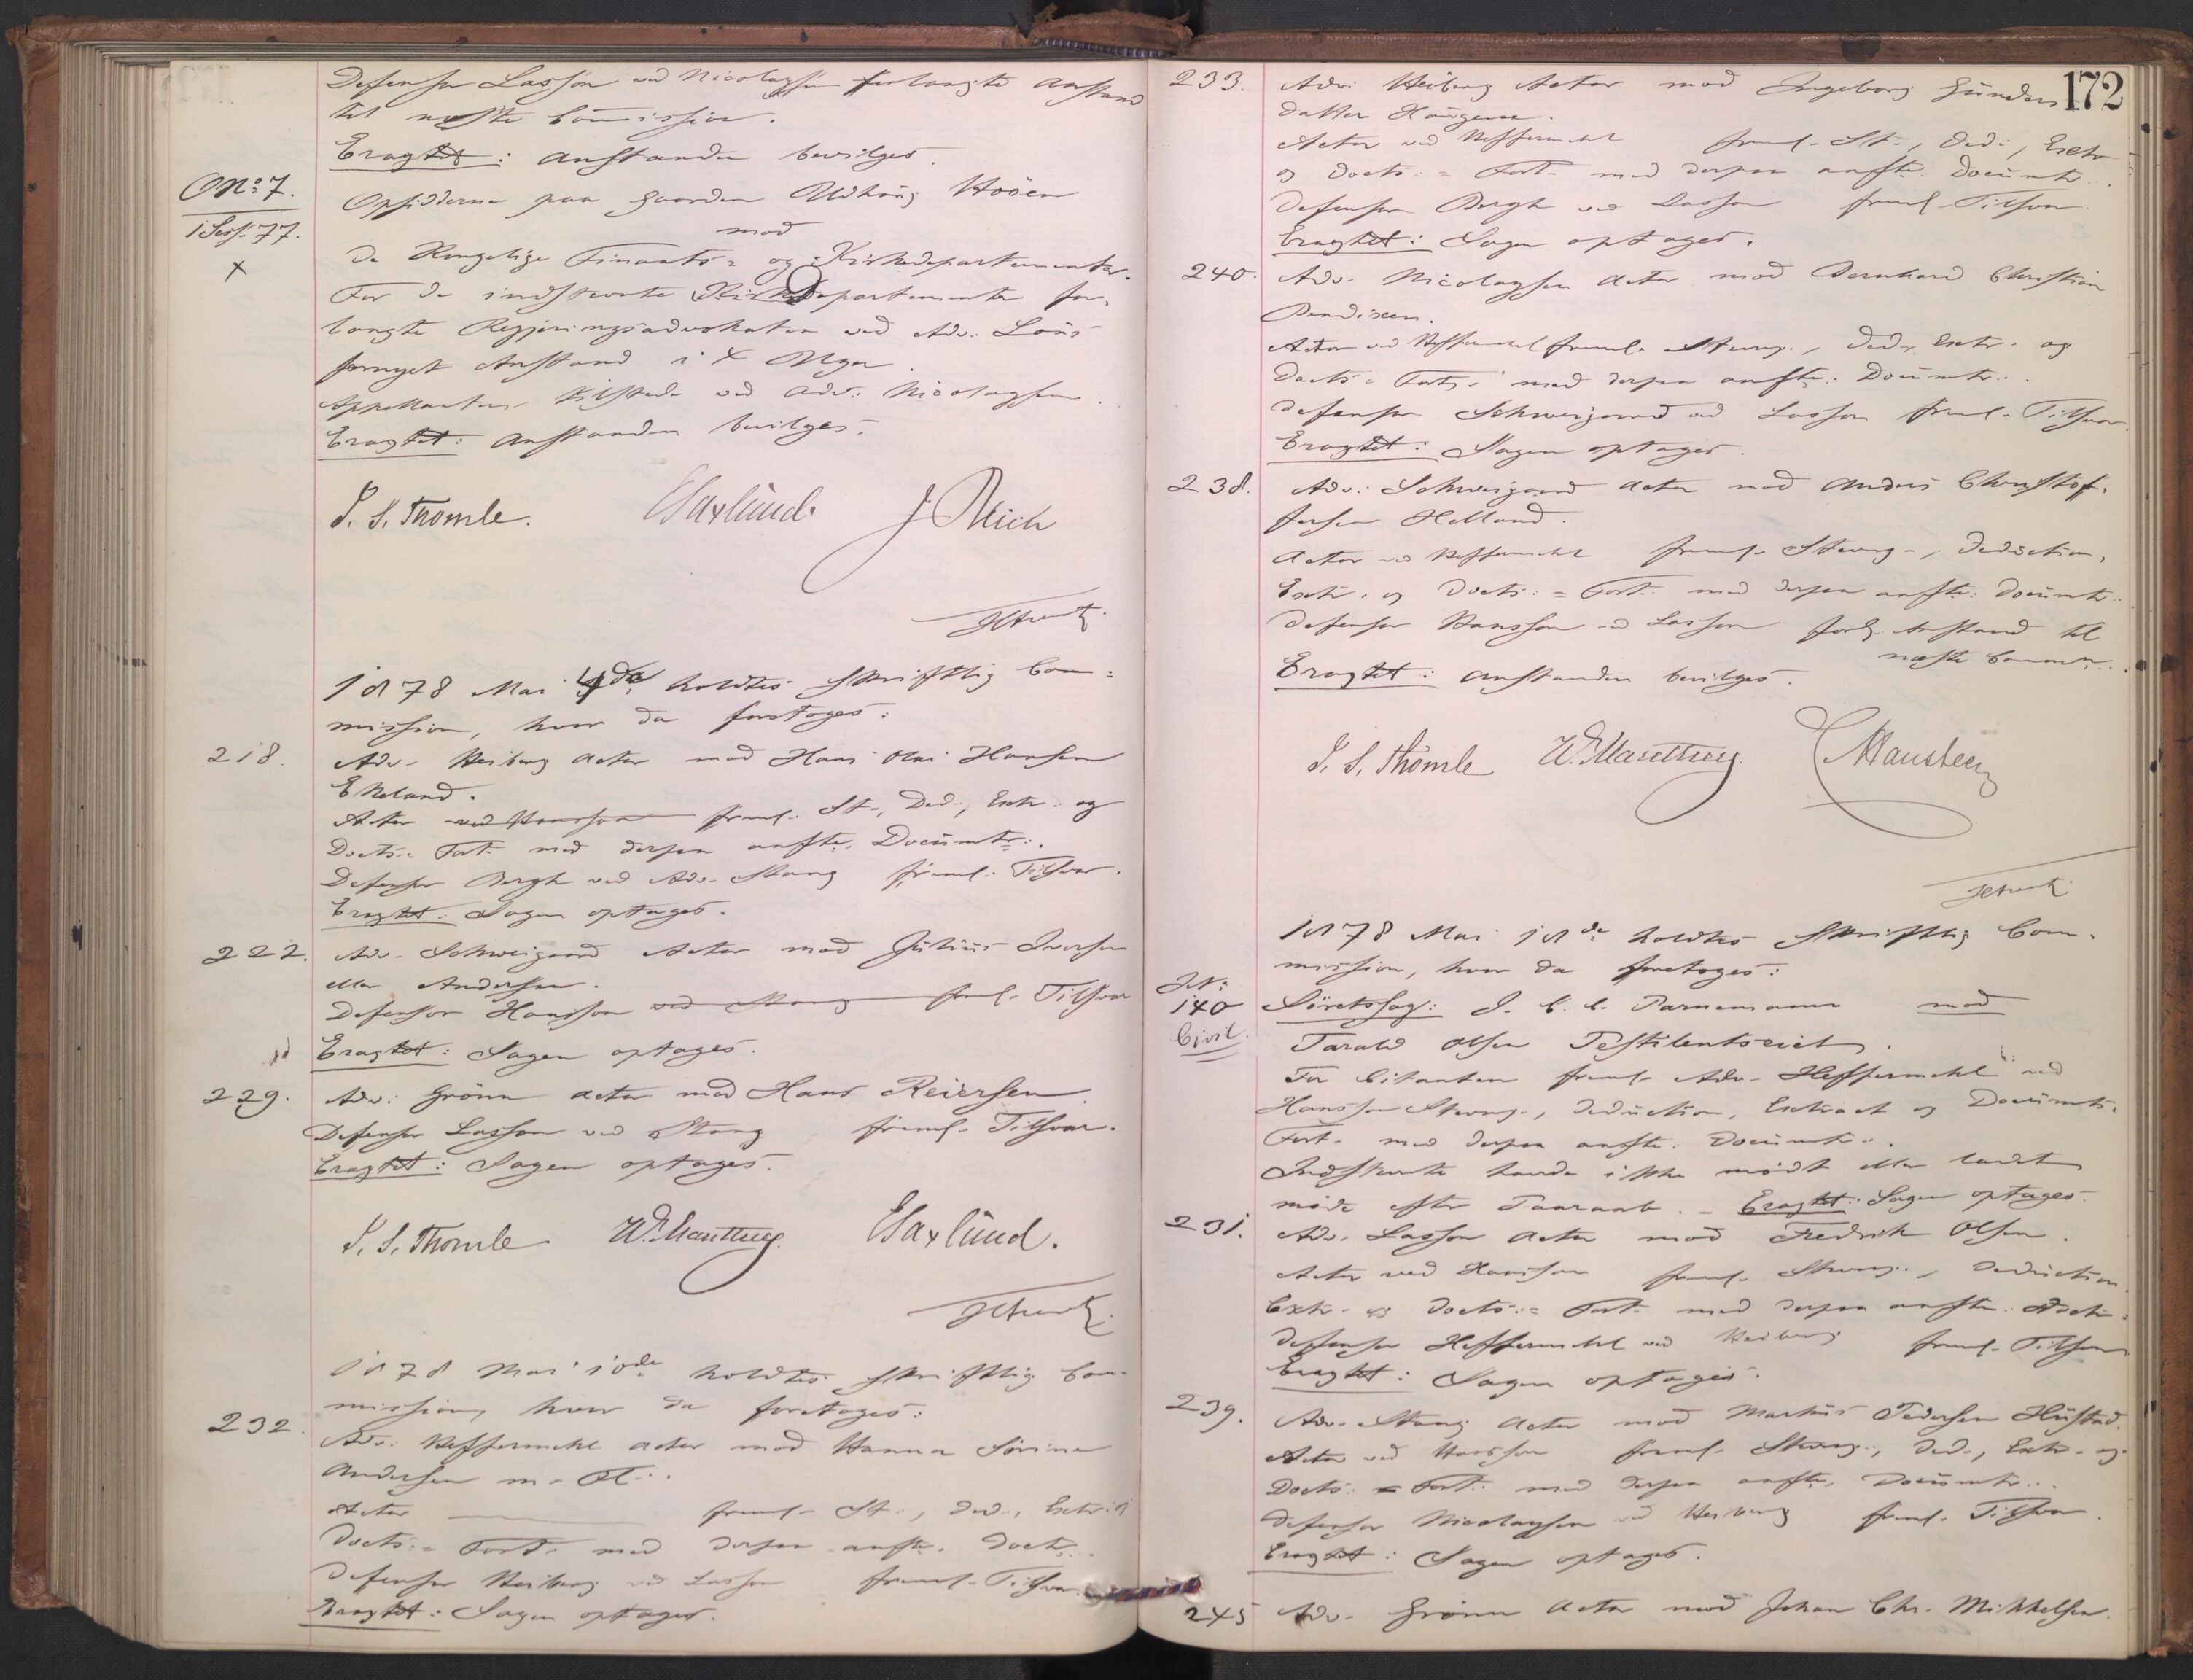 Defensor Lasson ved Nicolaysen forlangte Anstand
til næste Commission.
Eragtet: Anstanden bevilges.
No. 7.
1 Sess. 77.
Opsidderne paa Gaarden
mod
de Kongelige Finants- og Kirkedepartementer.
For de indstevnte Departementer for-
langte Regjeringsadvokaten ved Adv.
fornyet Anstand i 4 Uger.
Appellanten tilstede ved Adv. Nicolaysen.
Eragtet: Anstanden bevilges.
S. S. Thomle. E Saxlund. J Reich
1878 Mai 4de holdtes skriftlig Com-
mission, hvor da foretoges:
218. Adv. Heiberg Actor mod Hans Olai Hansen
Ekeland.
Actor ved Hansson freml. St., Ded., Extr. og
Docts.- Fort. med derpaa anførte Documtr.
Defensor Bergh ved Adv. Stang freml. Tilsvar.
Eragtet: Sagen optages.
222. Adv. Schweigaard Actor mod Julius Iversen
eller Andersen.
Defensor Hansson ved Stang freml. Tilsvar
Eragtet: Sagen optages.
229. Adv. Grönn Actor mod Hans Reiersen.
Defensor Lasson ved Stang freml. Tilsvar.
Eragtet: Sagen optages.
S. S. Thomle E Saxlund.
1878 Mai 10de holdtes skriftlig Com-
mission, hvor da foretoges:
232. Adv. Heffermehl Actor mod Hanna Sørine
Andersen m. Fl.
Actor freml. St., Ded., Extr. og
Docts.- Fort. med derpaa anførte Docts.
Defensor Heiberg ved Lasson freml. Tilsvar.
Eragtet: Sagen optages.
172
233. Adv. Heiberg Actor mod Ingeborg Gunders
datter Haugene.
Actor ved Heffermehl freml. St., Ded., Extr.
og Docts.- Fort. med derpaa anførte Documtr.
Defensor Bergh ved Lasson freml. Tilsvar.
Eragtet: Sagen optages.
240. Adv. Nicolaysen Actor mod Bernhard Christian
Bendixen.
Actor ved Heffermehl freml. Stevng., Ded., Extr. og
Docts.- Fort. med derpaa anførte Documtr.
Defensor Schweigaard ved Lasson freml. Tilsvar.
Eragtet: Sagen optages.
238. Adv. Schweigaard Actor mod Anders Christof-
fersen Helland.
Actor ved Heffermehl freml. Stevng., Deduction,
Extr. og Docts.- Fort. med derpaa anførte Documtr.
Defensor Hansson ved Lasson forl. Anstand til
næste Comm.
Eragtet: Anstanden bevilges.
S. S. Thomle
1878 Mai 18de holdtes skriftlig Com-
mission, hvor da foretoges:
140
Civil.
Søretssag: J. C. C. Parnemann mod
Tarald Olsen Pestilentseiet.
For Citanten freml. Adv. Heffermehl ved
Hansson Stevng., Deduction, Extract og Documts.-
Fort. med derpaa anførte Documtr.
Indstevnte havde ikke mødt eller ladet
møde efter Paaraab. - Eragtet: Sagen optages.
231. Adv. Lasson Actor mod Fredrik Olsen.
Actor ved Hansson freml. Stevng., Deduction
Extr. og Docts.- Fort. med derpaa anførte Docts.
Defensor Heffermehl ved Heiberg freml. Tilsvar
Eragtet: Sagen optages.
239. Adv. Stang Actor mod Martius Pedersen Hustad.
Actor ved Hansson freml. Stevng., Ded., Extr. og
Docts.- Fort. med derpaa anførte Documtr.
Defensor Nicolaysen ved Heiberg freml. Tilsvar.
Eragtet: Sagen optages.
245 Adv. Grönn Actor mod Johan Chr. Mikkelsen.